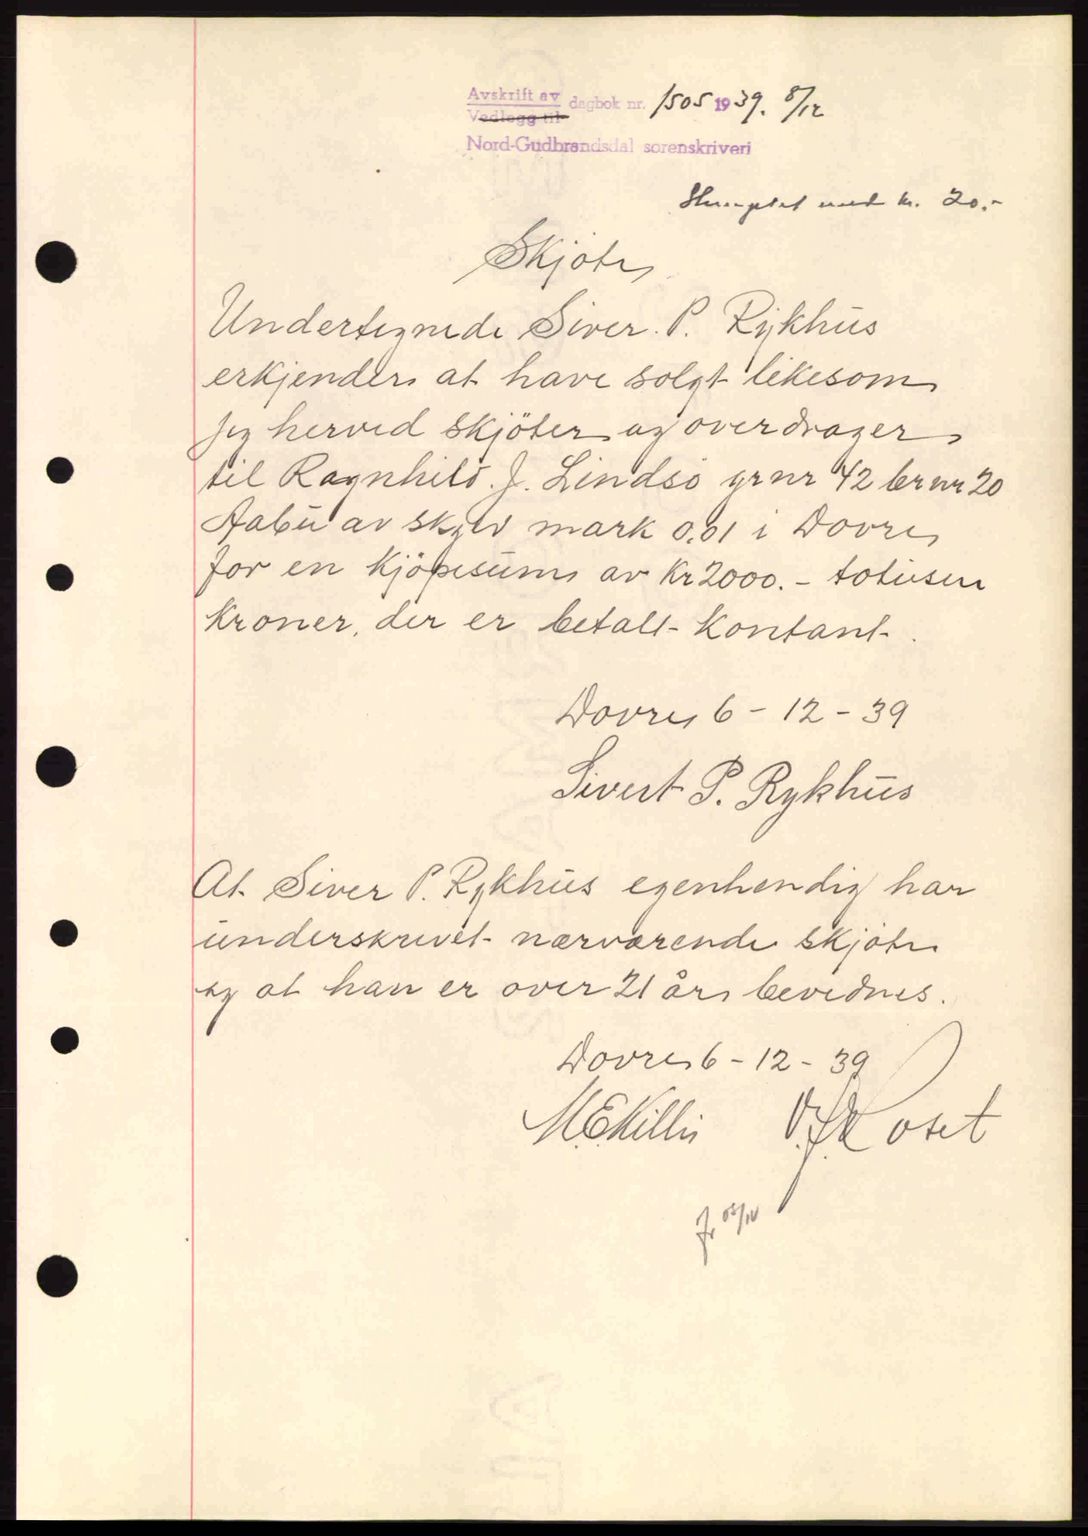 Avskrift av dagbok nr. 1505 1939. 8/12
Vedlegg til
Nord-Gudbrandsdal sorenskriveri
Stemplet med kr. 20.-
Skjöte
Undertegnede Siver. P. Rykhus
erkjender at have solgt likesom
jeg herved skjöter og overdrager
til Ragnhild. J. Lindsö grnr 42 brnr 20
Aabu av skyld mark 0.01 i Dovre
for en kjöpesum av Kr 2000.- totusen
Kroner, der er betalt kontant.
Dovre 6 - 12 - 39
Sivert P. Rykhus
At Siver P. Rykhus egenhendig har
underskrivet nærværende skjöte
og at han er over 21 år bevidnes.
Dovre 6 - 12 - 39
M.E.Killi